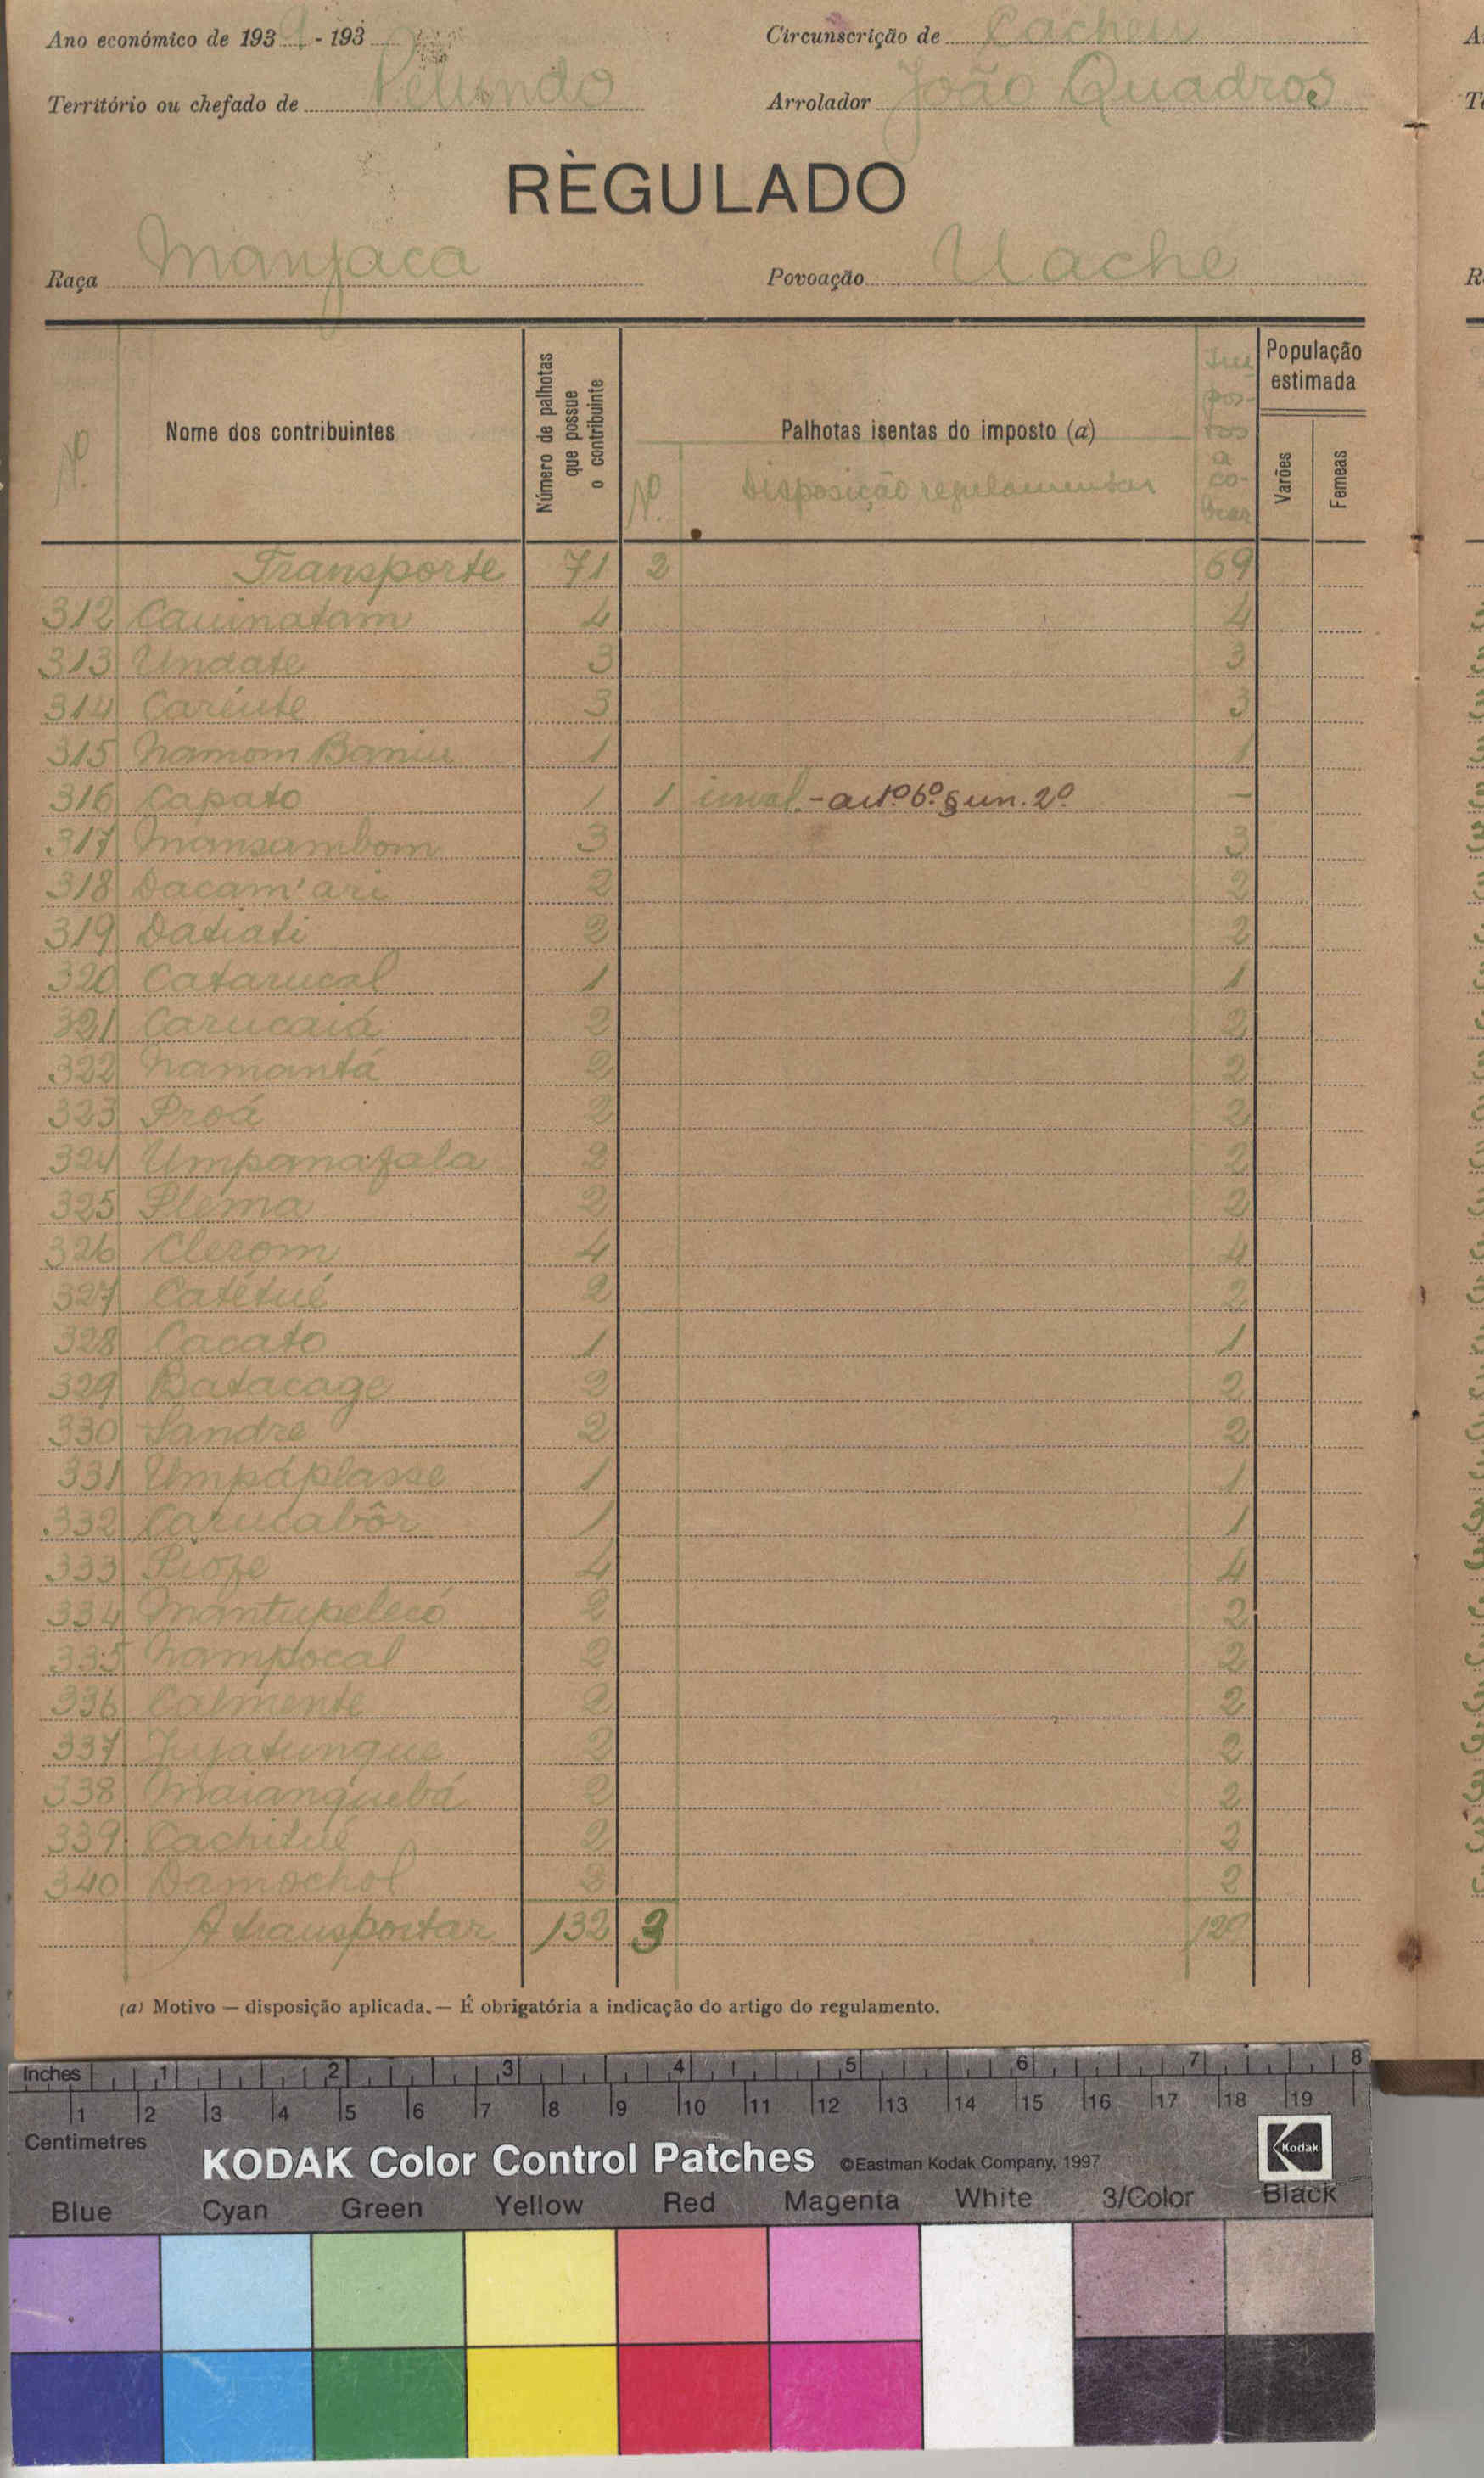 Ano económico de 1939 - 193
Circunscrição de Cacheu
Território ou chefado de Pelundo
Arrolador João Quadros
RÈGULADO
Raça Manjaca
Povoação Uache
Nº
Nome dos contribuintes
Número de palhotas que possue o contribuinte
Palhotas isentas do imposto (a)
Nº Disposição regulamentar
Impostos a cobrar
População estimada
Varões
Femeas
Transporte 71 2 69
312 Cauinatam 4 4
313 Undate 3 3
314 Caréute 3 3
315 Namom Baniu 1 1
316 Capato 1 1 inval. - artº 6º § un. 2º -
317 Mansambom 3 3
318 Dacam'ari 2 2
319 Datiati 2 2
320 Catarucal 1 1
321 Carucaiá 2 2
322 Namantá 2 2
323 Proá 2 2
324 Umpanafala 2 2
325 Plema 2 2
326 Clerom 4 4
327 Catétué 2 2
328 Cacato 1 1
329 Batacage 2 2
330 Sandre 2 2
331 Umpáplasse 1 1
332 Carucabôr 1 1
333 Piofe 4 4
334 Mantupelecó 2 2
335 Nampocal 2 2
336 Calmente 2 2
337 Jujatungue 2 2
338 Maianguebá 2 2
339 Cachitué 2 2
340 Damochol 2 2
A transportar 132 3 129
(a) Motivo — disposição aplicada. — É obrigatória a indicação do artigo do regulamento.
Inches 1 2 3 4 5 6 7 8
1 2 3 4 5 6 7 8 9 10 11 12 13 14 15 16 17 18 19
Centimetres
KODAK Color Control Patches ©Eastman Kodak Company, 1997 Kodak
Blue Cyan Green Yellow Red Magenta White 3/Color Black